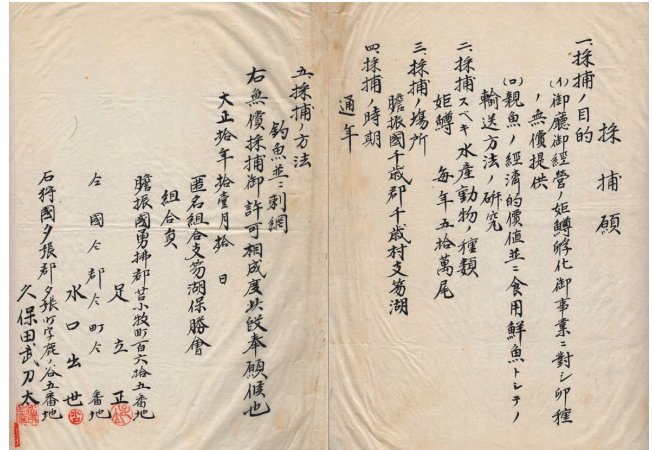 採捕願
一、採捕ノ目的
(イ)御廳御經營ノ姫鱒孵化御事業ニ對シ卵種
ノ無償提供
(ロ)親魚ノ經済的價値並ニ食用鮮魚トシテノ
輸送方法ノ研究
二、採捕スベキ水産動物ノ種類
姫鱒 毎年五拾萬尾
三、採捕ノ場所
膽振國千歳郡千歳村支笏湖
四、採捕ノ時期
通年
五、採捕ノ方法
釣魚並ニ刺網
右無償採捕御許可相成度此段奉願候也
大正拾年拾壹月拾 日
匿名組合支笏湖保勝會
組合員
膽振國勇拂郡苫小牧町百六拾五番地
足立正
仝國仝郡仝町仝 番地
水口出世
石狩國夕張郡夕張町字鹿ノ谷五番地
久保田武刀太